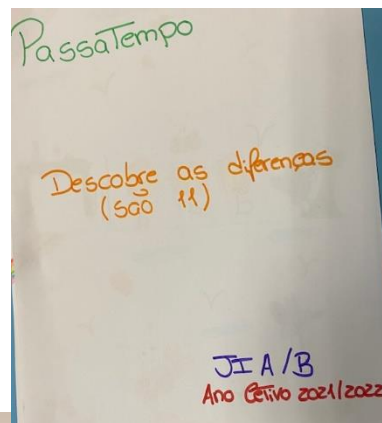 PassaTempo
Descobre as diferenças
(são 11)
JI A/B
Ano Letivo 2021/2022